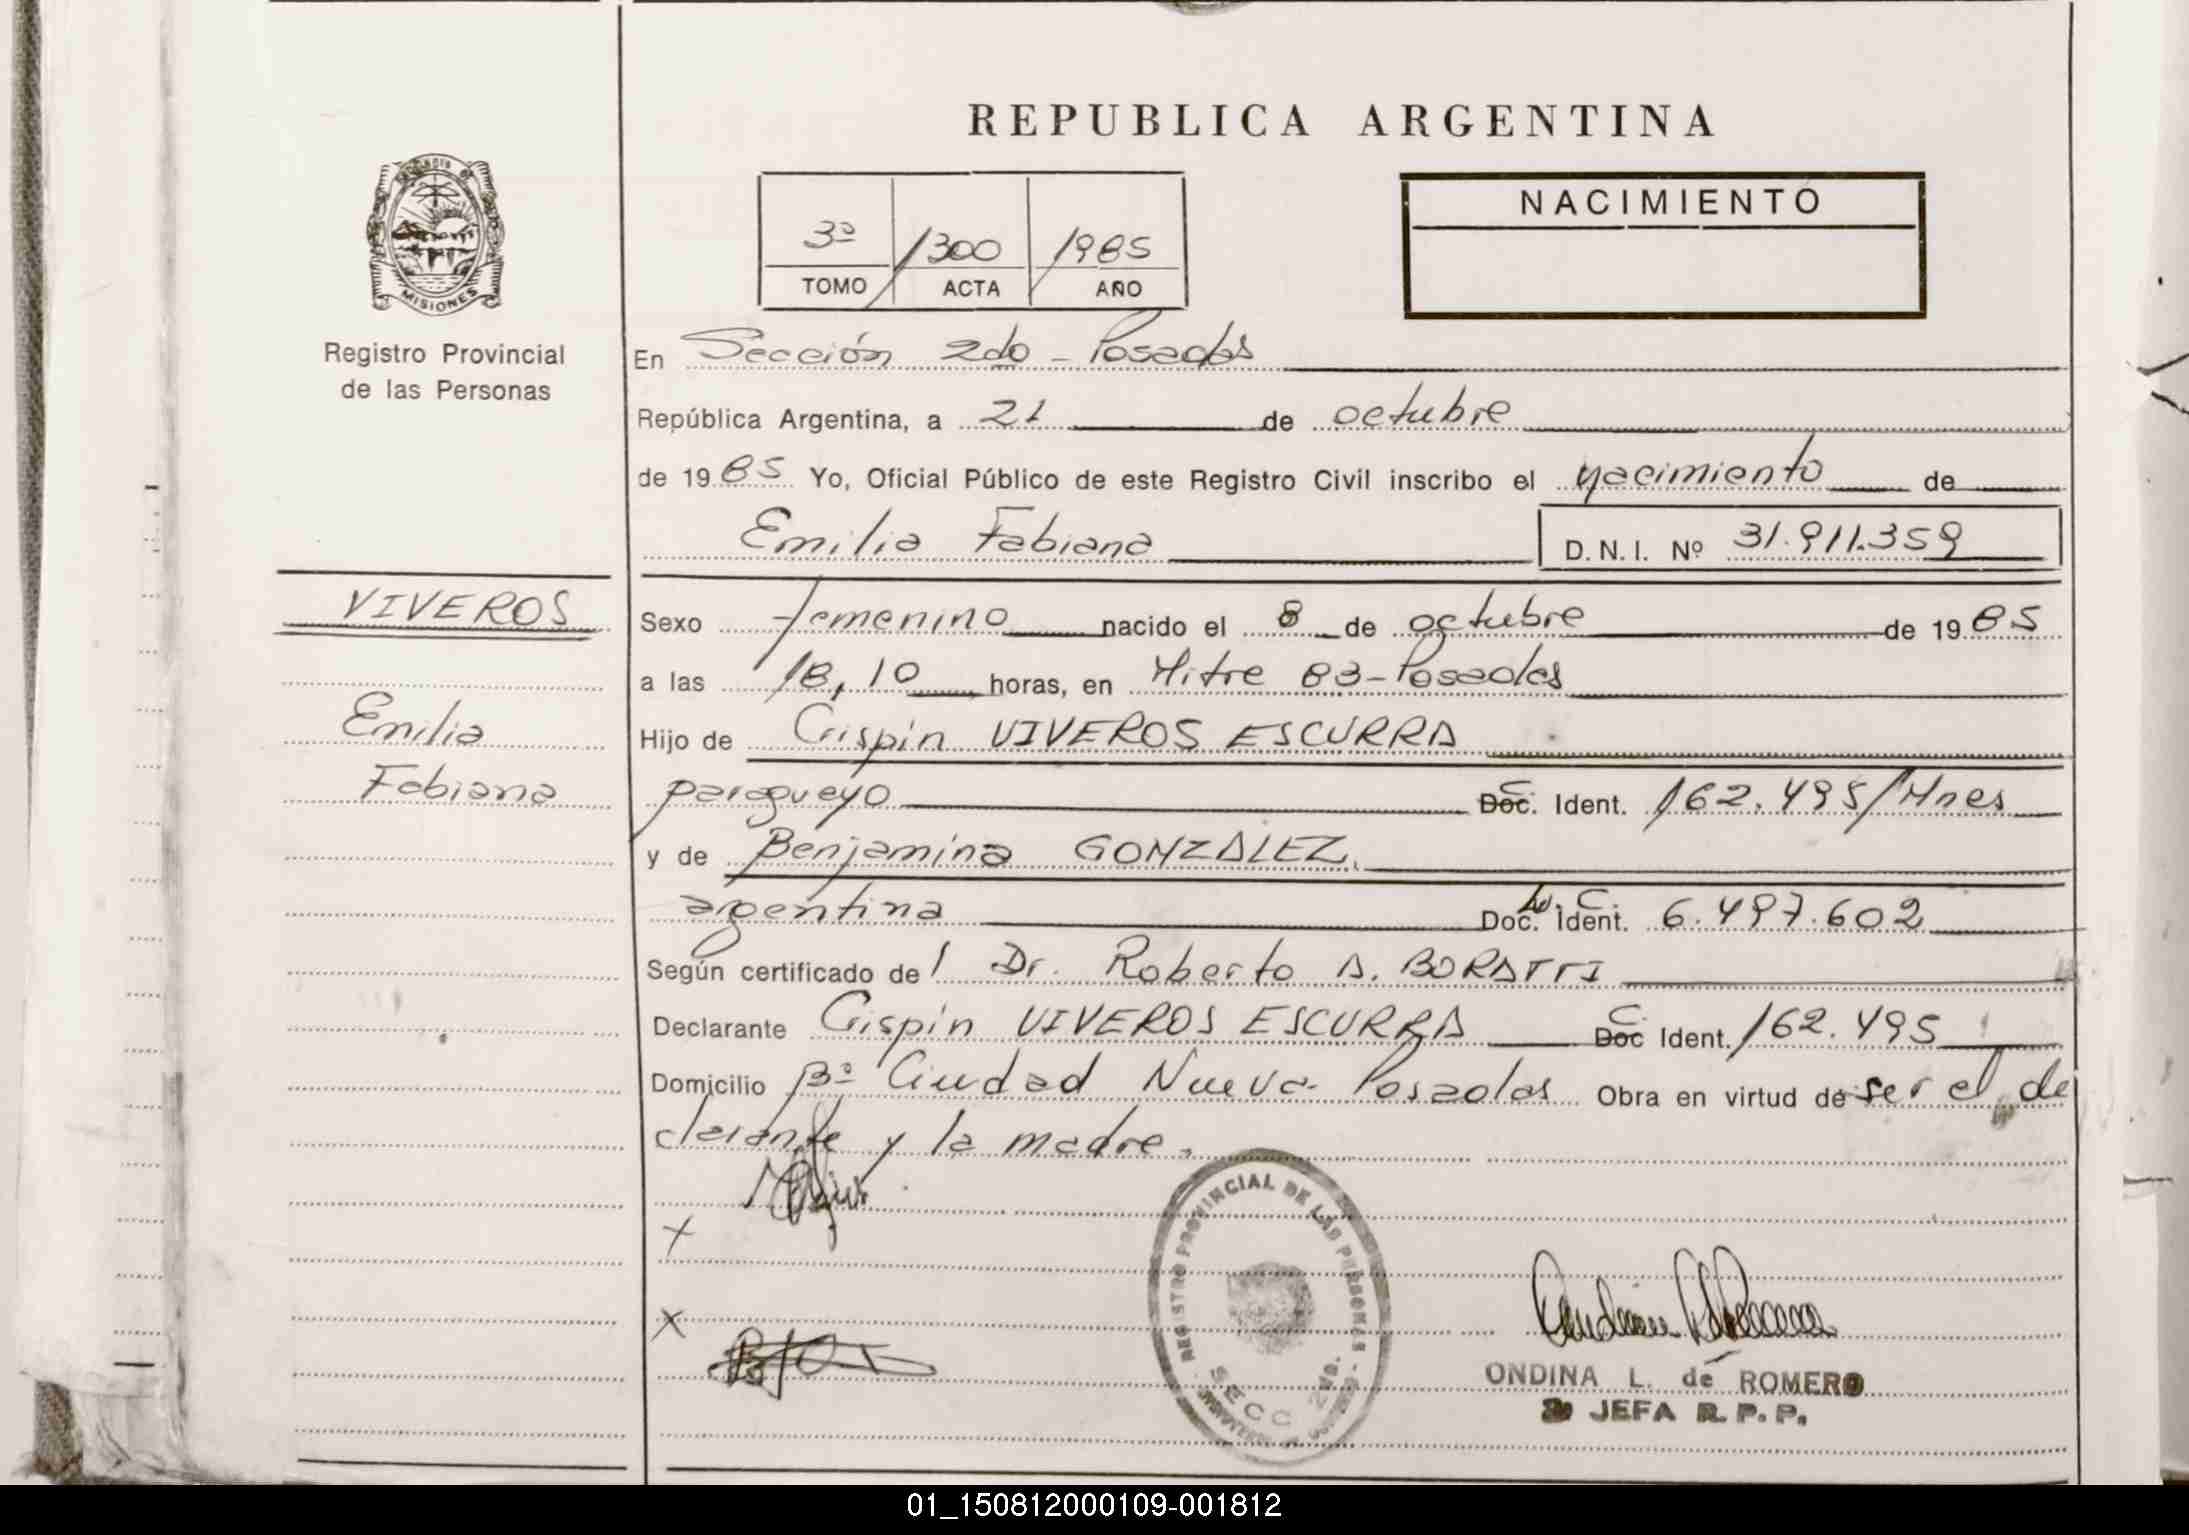 REPUBLICA ARGENTINA
NACIMIENTO
3º /300 1985
TOMO ACTA AÑO
MISIONES
Registro Provincial
de las Personas
En Sección 2da - Posadas
República Argentina, a 21 de octubre
de 1985 Yo, Oficial Público de este Registro Civil inscribo el nacimiento de
Emilia Fabiana D.N.I. Nº 31.911.359
VIVEROS
Emilia
Fabiana
Sexo femenino nacido el 8 de octubre de 1985
a las 18,10 horas, en Mitre 83 - Posadas
Hijo de Crispín VIVEROS ESCURRA
paraguayo Doc. C. Ident. 162.495/Mnes
y de Benjamina GONZALEZ,
argentina Doc. Ident. L. C. 6.497.602
Según certificado del Dr. Roberto A. BORATTI
Declarante Crispín VIVEROS ESCURRA Doc C. Ident. 162.495
Domicilio Bº Ciudad Nueva - Posadas Obra en virtud de ser el de
clarante y la madre.
X
X
REGISTRO PROVINCIAL DE LAS PERSONAS
SECC 2DA.
ONDINA L. de ROMERO
JEFA R.P.P.
01_150812000109-001812